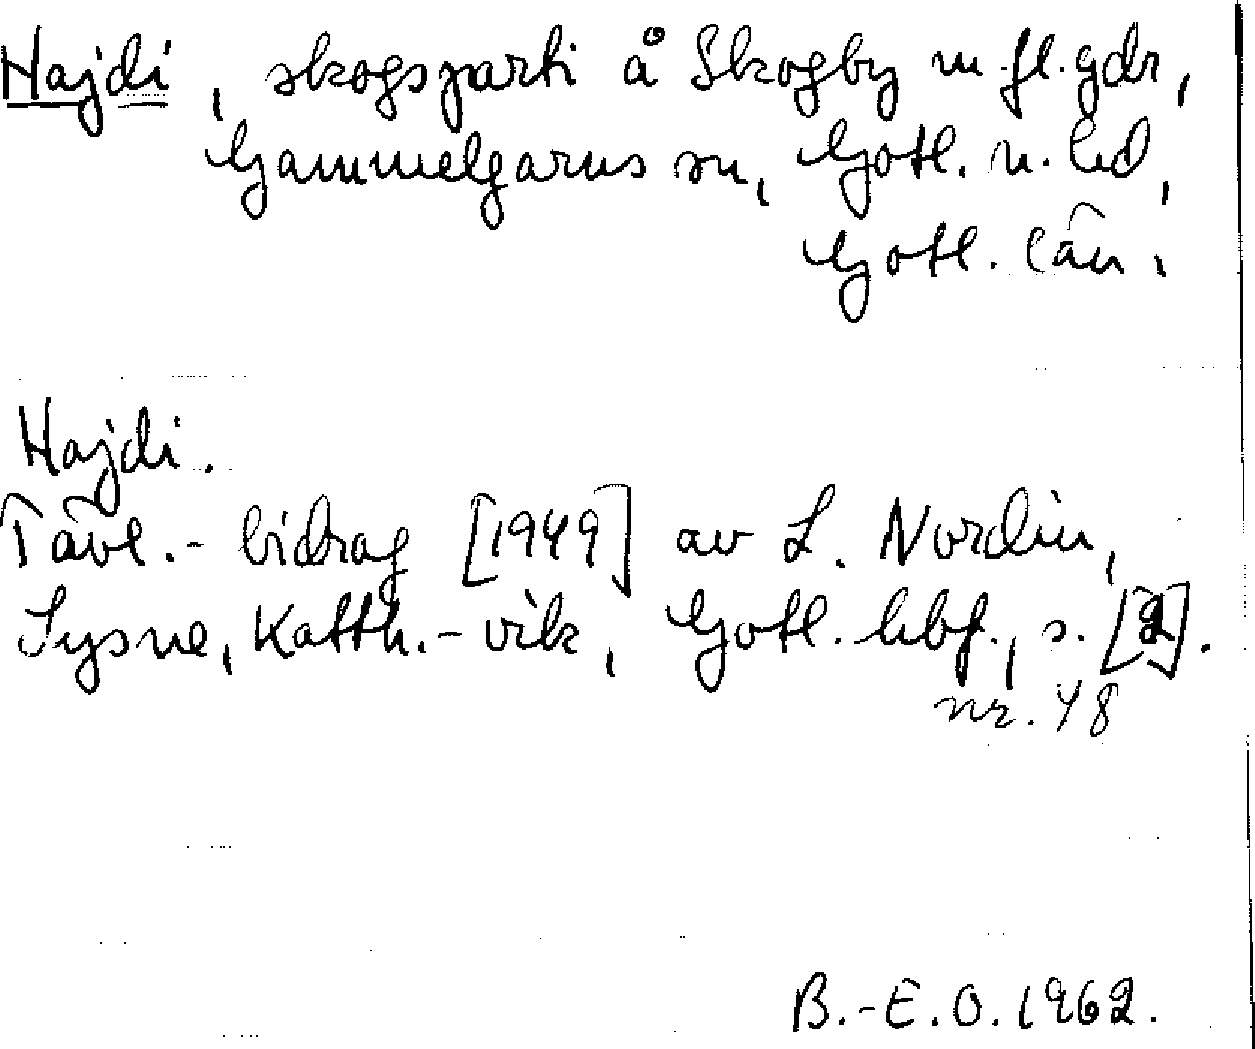 Hajdi, skogsparti å Skogby m.fl. gdr,
Gammelgarns sn, Gotl. n. hd,
Gotl. län.
Hajdi.
Tävl.-bidrag [1949] av L. Nordin,
Sysne, Katth.-vik, Gotl. hbf., s. [2].
nr. 48
B.-E.O. 1962.